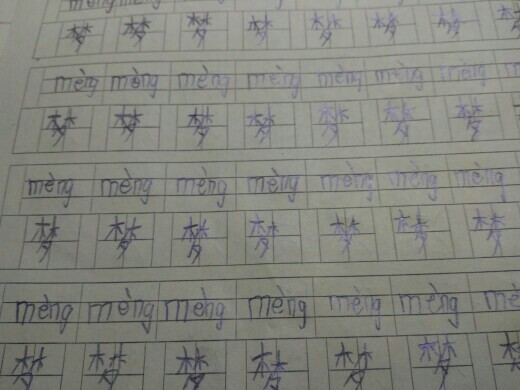 梦 梦 梦 梦 梦 梦 梦
mèng mèng mèng mèng mèng mèng mèng
梦 梦 梦 梦 梦 梦 梦
mèng mèng mèng mèng mèng mèng mèng
梦 梦 梦 梦 梦 梦 梦
mèng mèng mèng mèng mèng mèng
梦 梦 梦 梦 梦 梦 梦